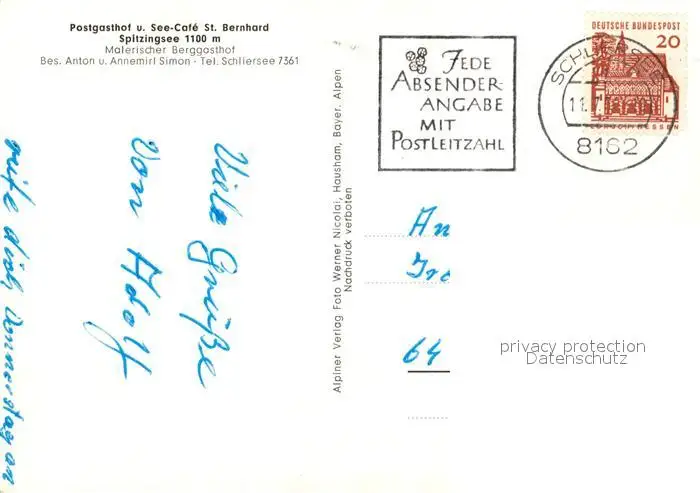 Postgasthof u. See-Café St. Bernhard
Spitzingsee 1100 m
Malerischer Berggasthof
Bes. Anton u. Annemirl Simon - Tel. Schliersee 7361
JEDE
ABSENDER-
ANGABE
MIT
POSTLEITZAHL
DEUTSCHE BUNDESPOST
20
SCHLIERSEE
11.7
8162
LORSCH HESSEN
Viele Grüße
von Adolf
rufe dich Donnerstag an
Alpiner Verlag Foto Werner Nicolai, Hausham, Bayer. Alpen
Nachdruck verboten
An
64
privacy protection
Datenschutz